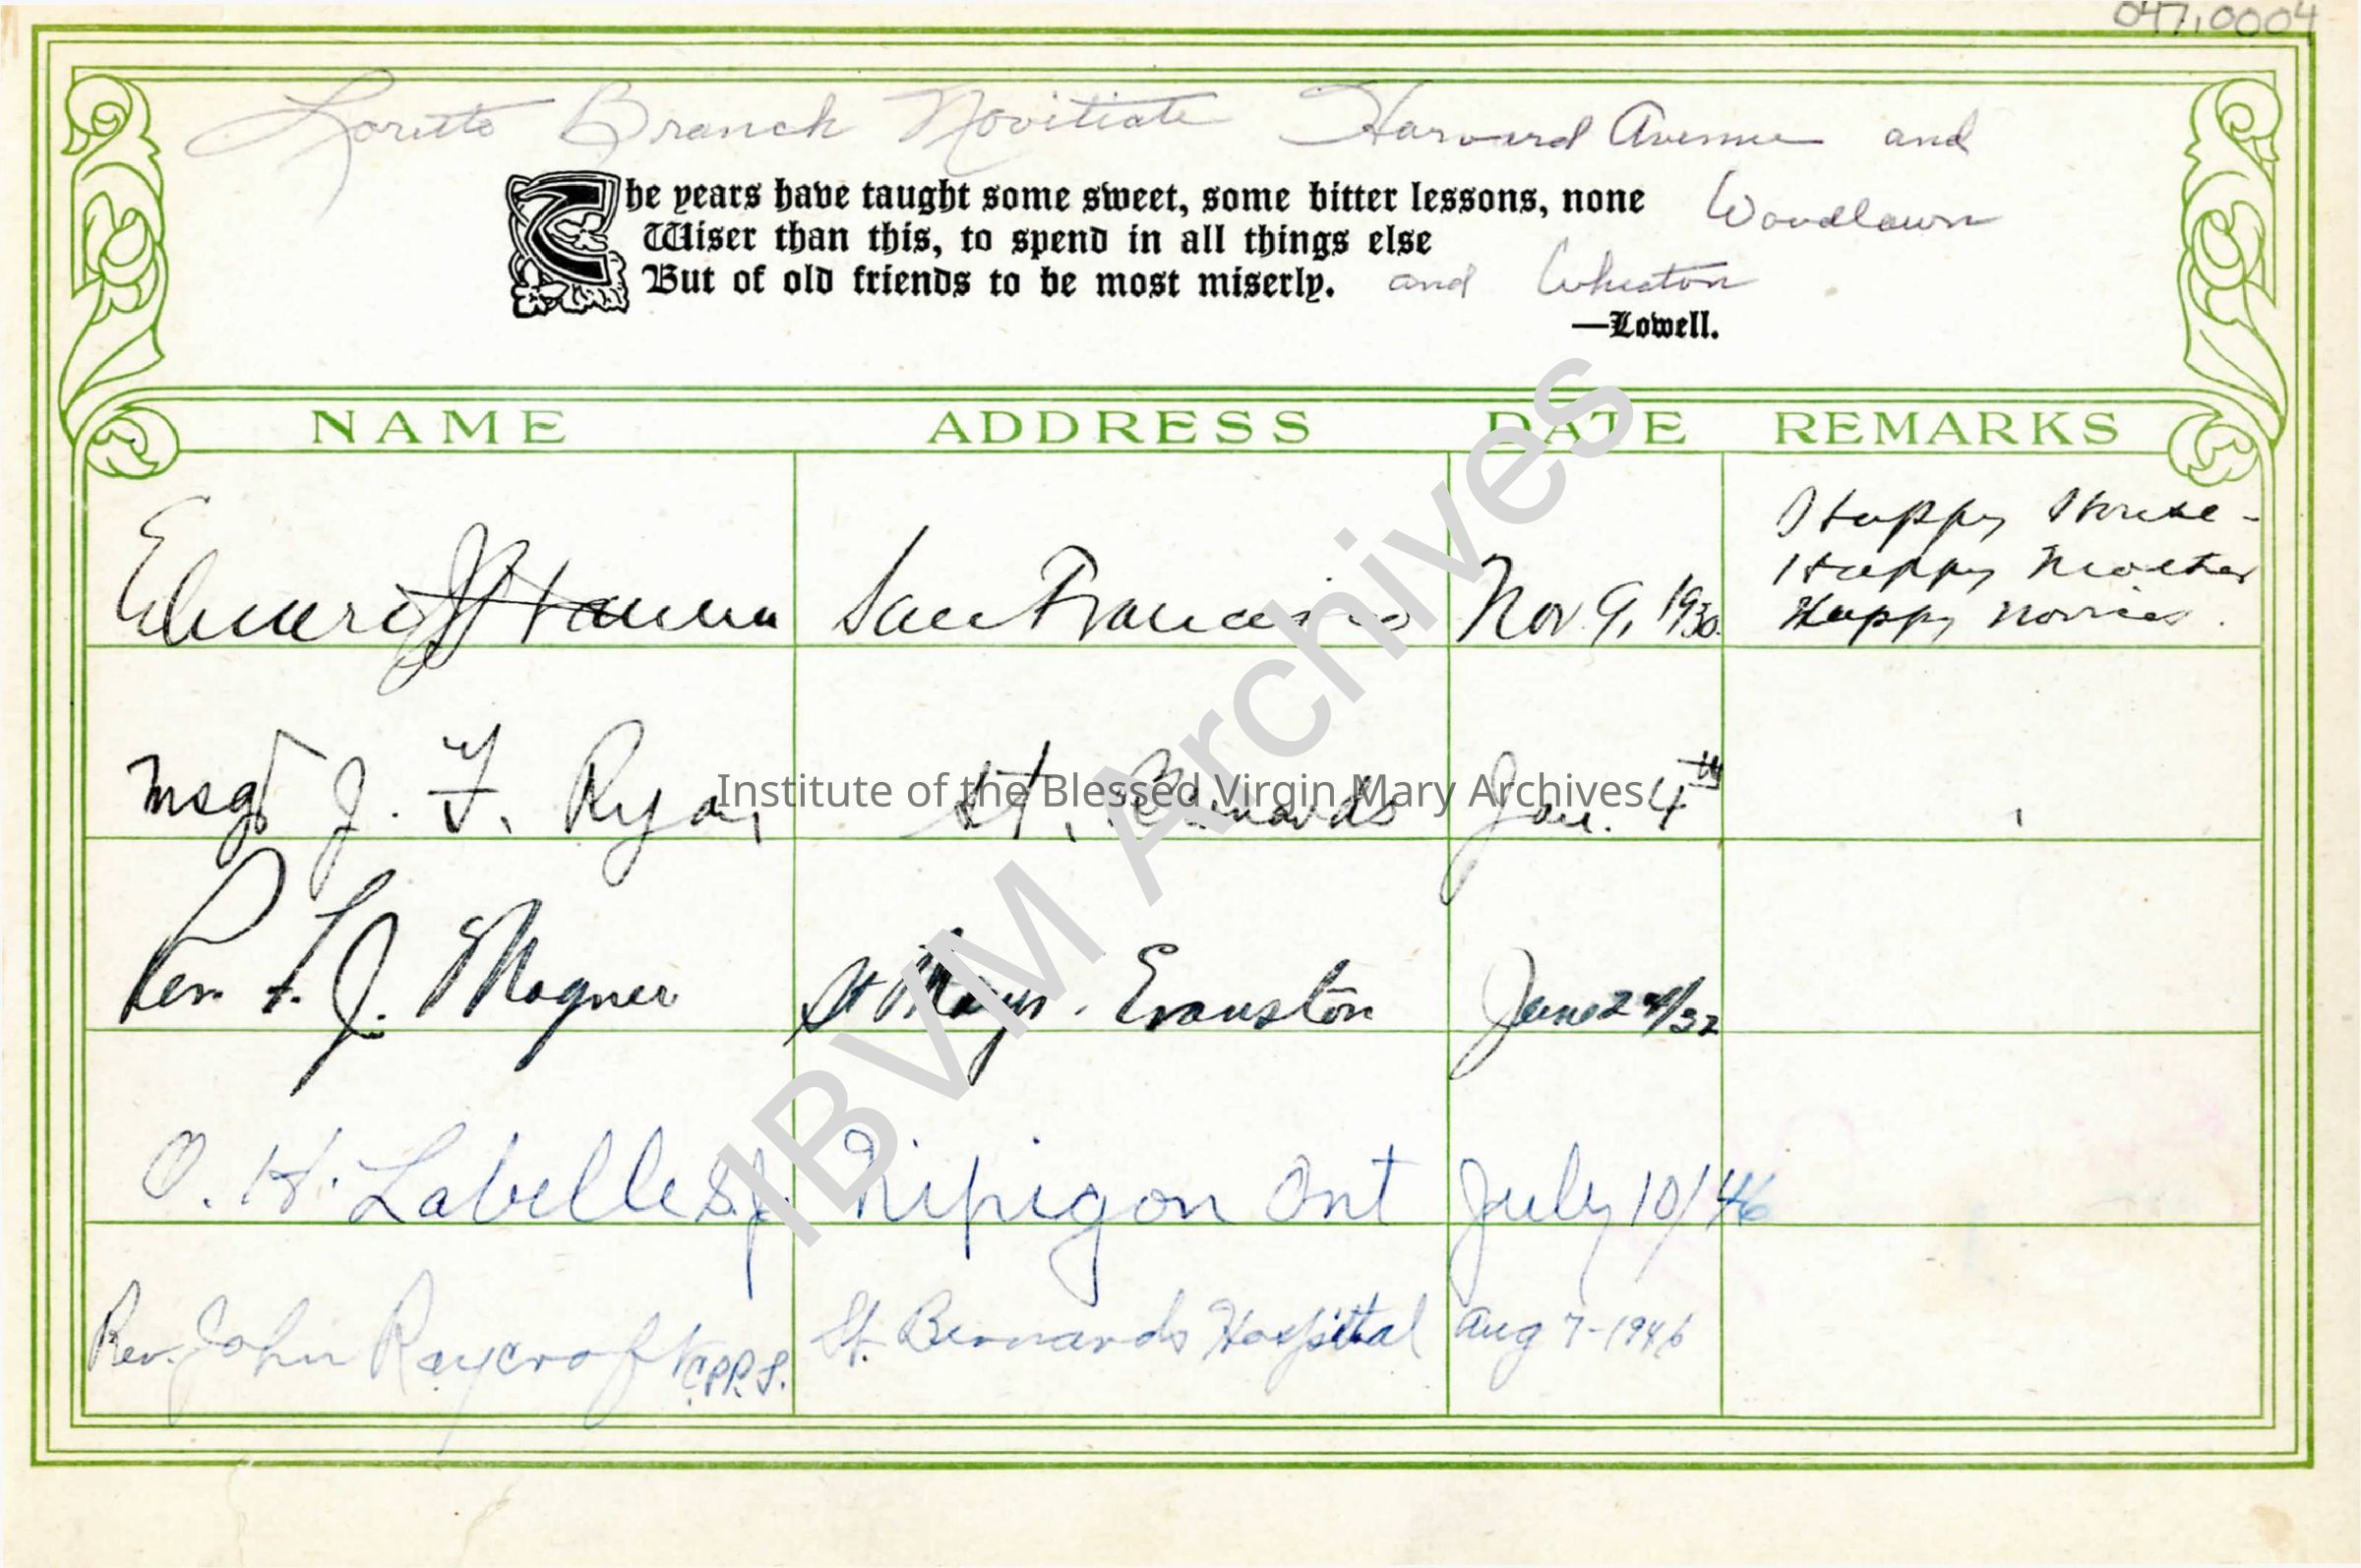 047.0004
Loretto Branch Novitiate Harvard Avenue and
The years have taught some sweet, some bitter lessons, none
Woodlawn
Wiser than this, to spend in all things else
But of old friends to be most miserly. and Wheaton
—Lowell.
NAME ADDRESS DATE REMARKS
Happy House -
Happy Mother
Edward J Hanna San Francisco Nov 9, 1930. Happy novices.
Msgr J. F. Ryan St. Bernards Jan. 4th
Rev. F. J. Magner St Marys. Evanston June 24/32
O. H. Labelle S.J. Nipigon Ont July 10/46
Rev. John Raycroft C.PP.S. St. Bernards Hospital Aug 7-1946
Institute of the Blessed Virgin Mary Archives
IBVM Archives